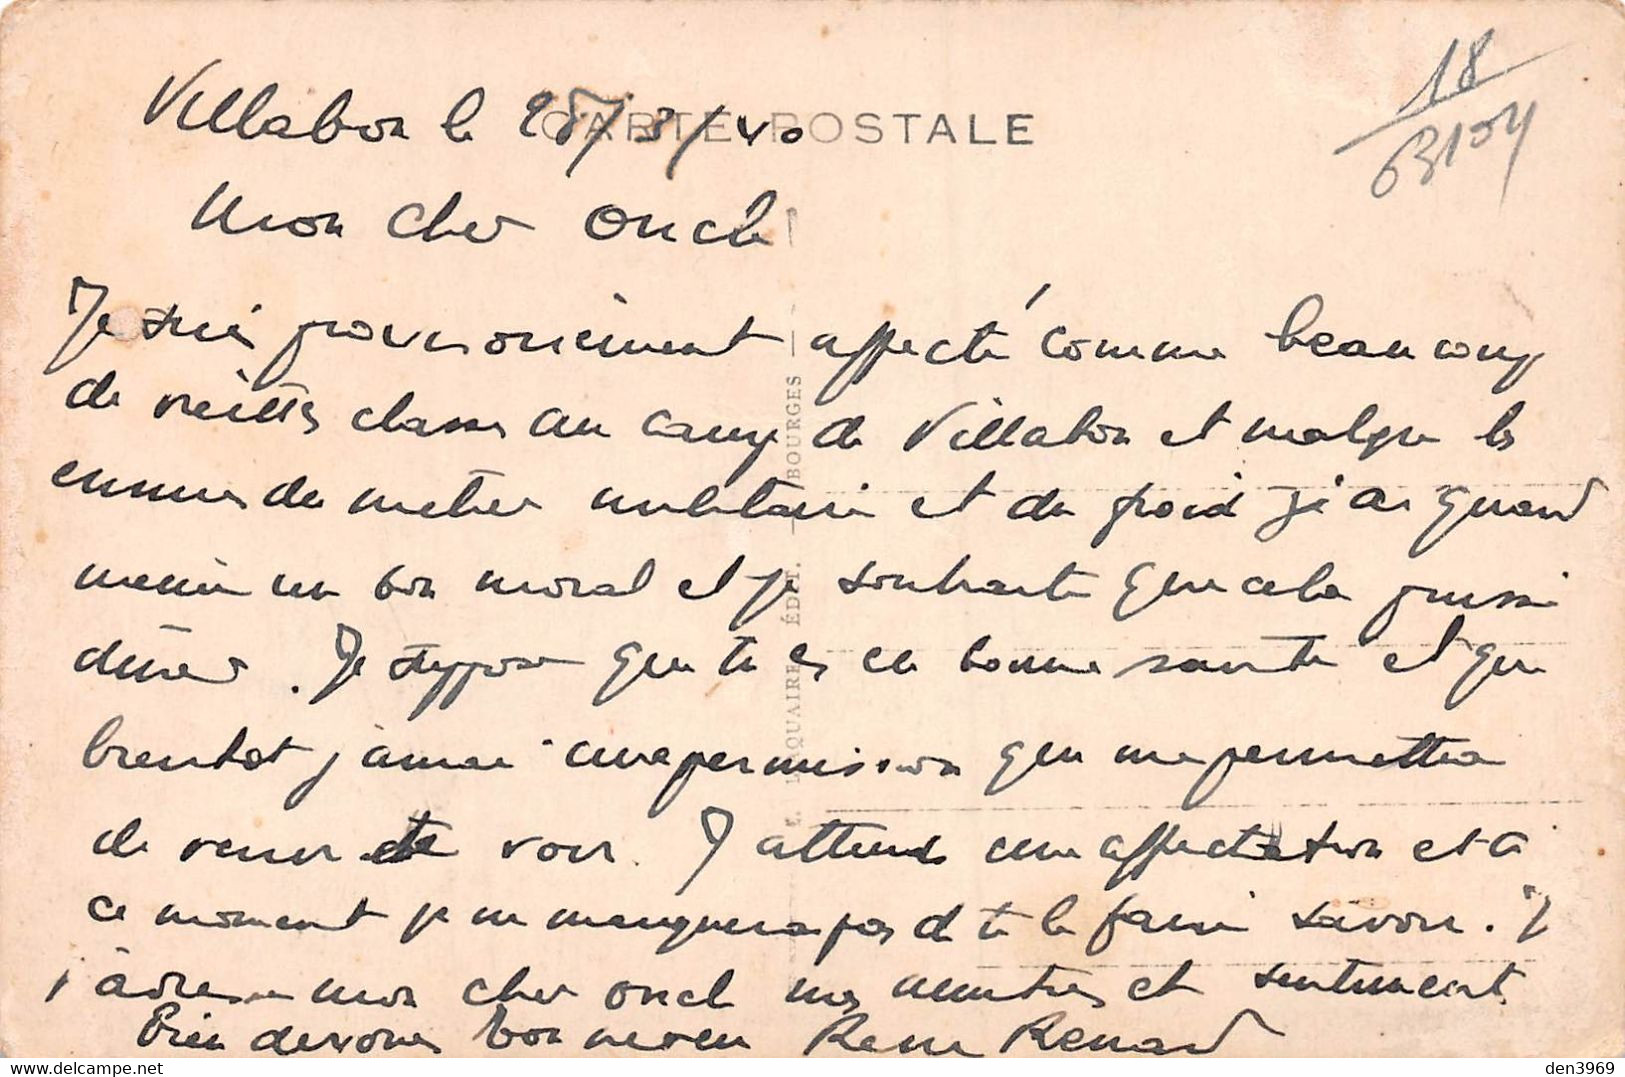 CARTE POSTALE
18
63104
Villabon le 28/3/40
Mon cher oncle
Je suis provisoirement affecté comme beaucoup
de vieilles classes au camp de Villabon et malgre les
ennuis du metier militaire et du froid j'ai quand
meme un bon moral et je souhaite que cela puisse
durer. Je suppose que tu es en bonne sante et que
bientot j'aurai une permission qui me permettra
de venir te voir. J'attends une affectation et à
ce moment je ne manquerai pas d te le faire savoir. J
j'adresse mon cher oncle mes sentiments
Bien devoues bon neveu Rene Renard
E. MAQUAIRE ÉDIT. BOURGES
den3969